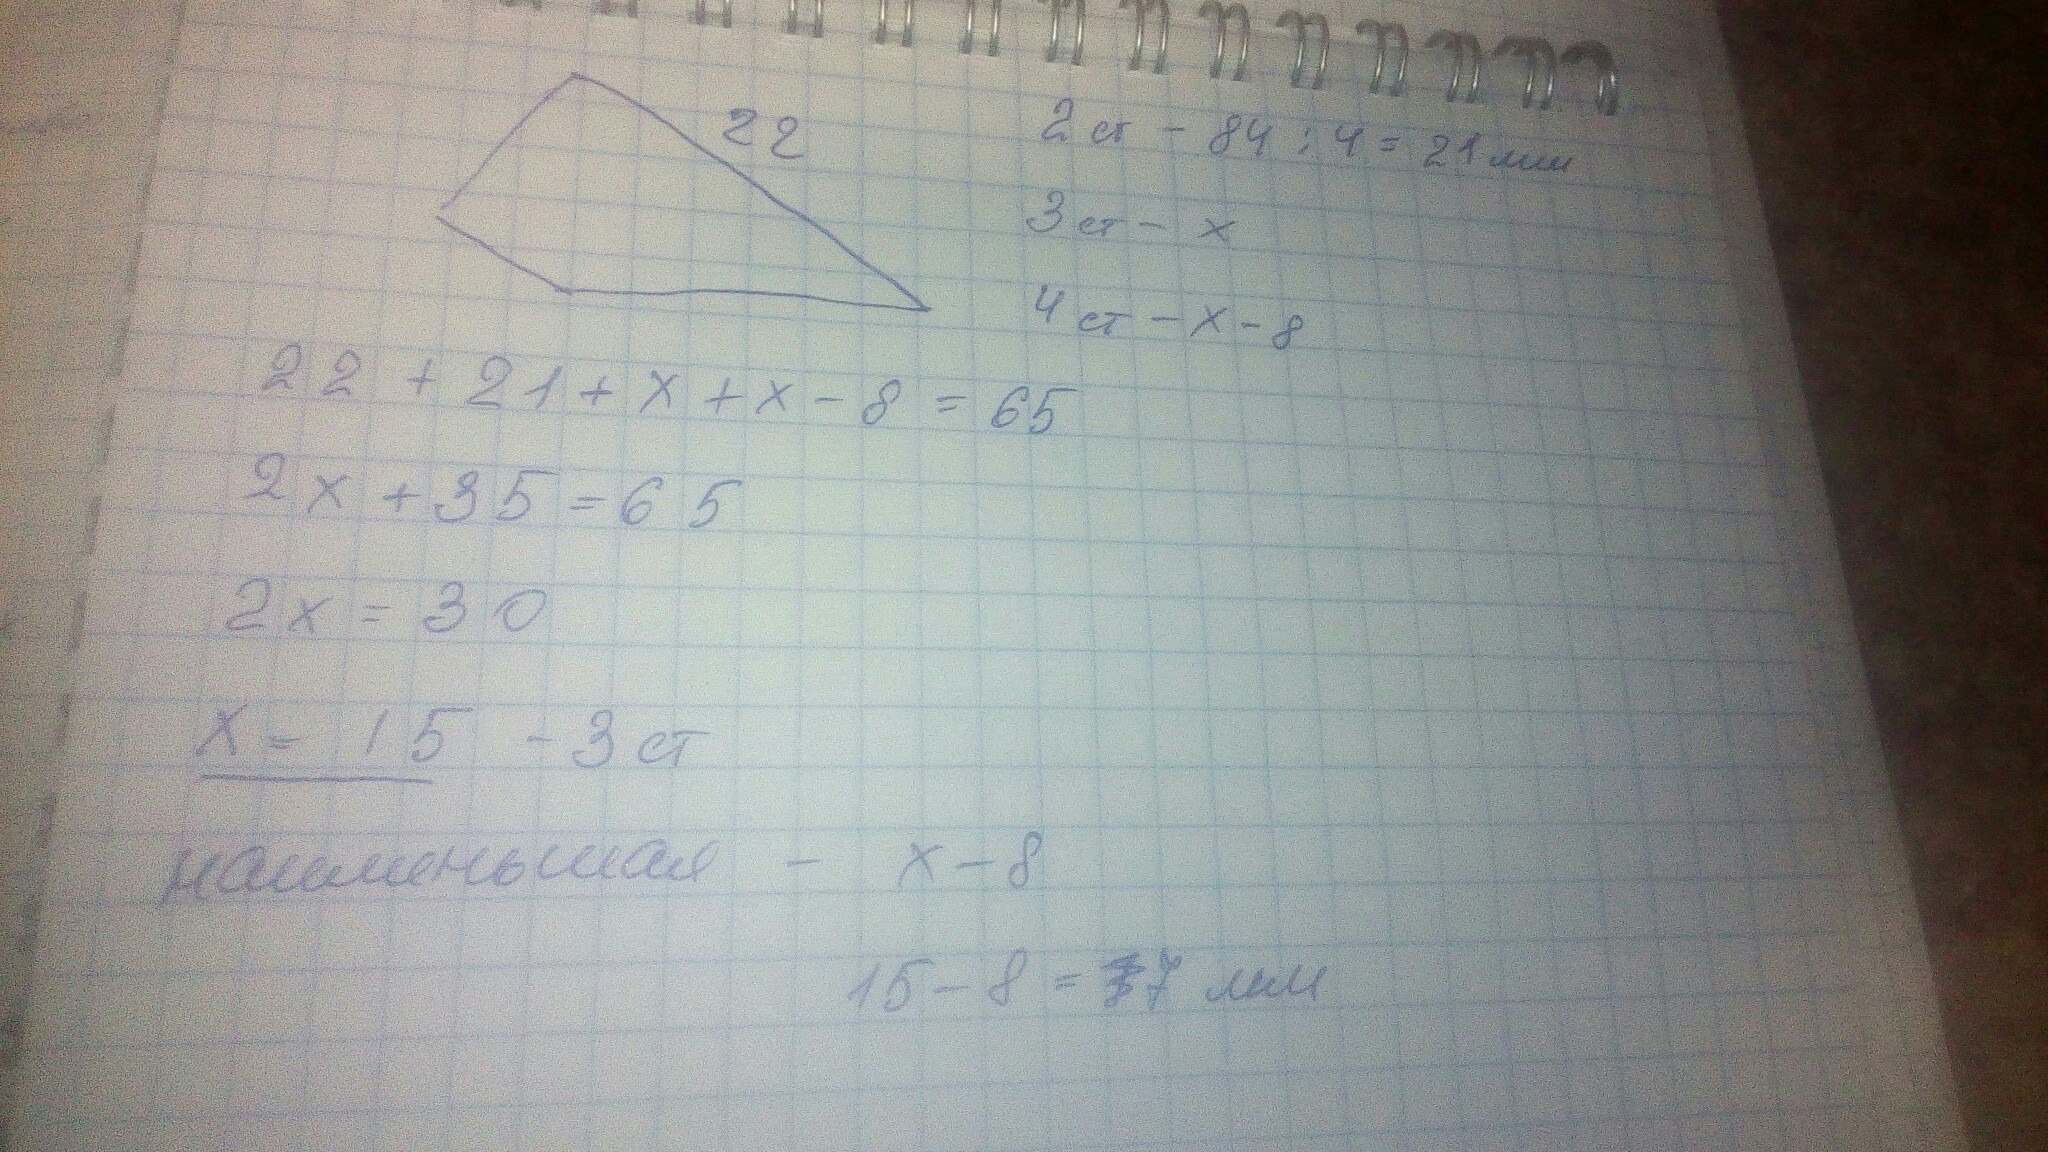 22
2 ст - 84 : 4 = 21 мм
3 ст - x
4 ст - x - 8
22 + 21 + x + x - 8 = 65
2x + 35 = 65
2x = 30
x = 15 - 3 ст
наименьшая - x - 8
15 - 8 = 7 мм